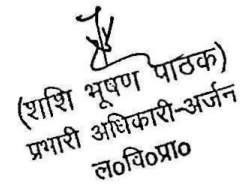 (शशि भूषण पाठक)
प्रभारी अधिकारी-अर्जन
ल०वि०प्रा०